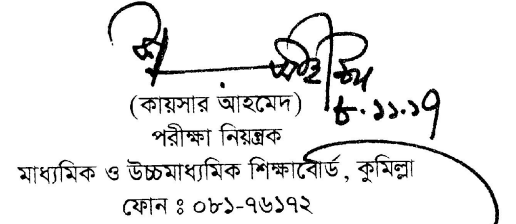 (কায়সার আহমেদ)
৮.১১.১৭
পরীক্ষা নিয়ন্ত্রক
মাধ্যমিক ও উচ্চমাধ্যমিক শিক্ষাবোর্ড, কুমিল্লা
ফোন ঃ ০৮১-৭৬১৭২